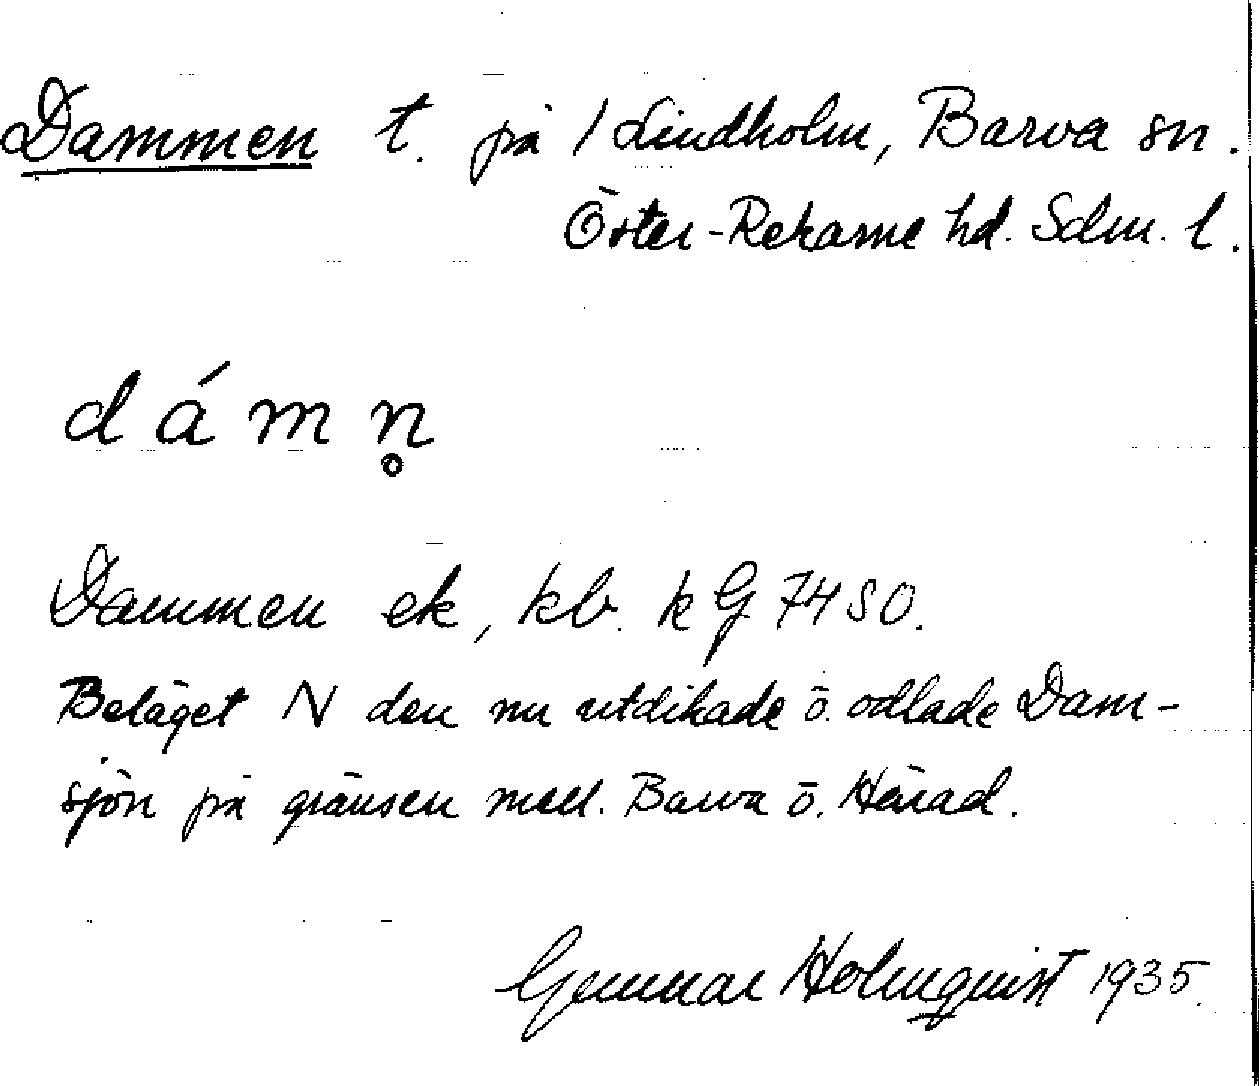 Dammen t. på / Lindholm, Barva sn.
Öster-Rekarne hd. Sdm. l.
dámn̥
Dammen ek, kb. k G 7450.
Beläget N den nu utdikade o. odlade Dam-
sjön på gränsen mell. Barva o. Härad.
Gunnar Holmquist 1935.